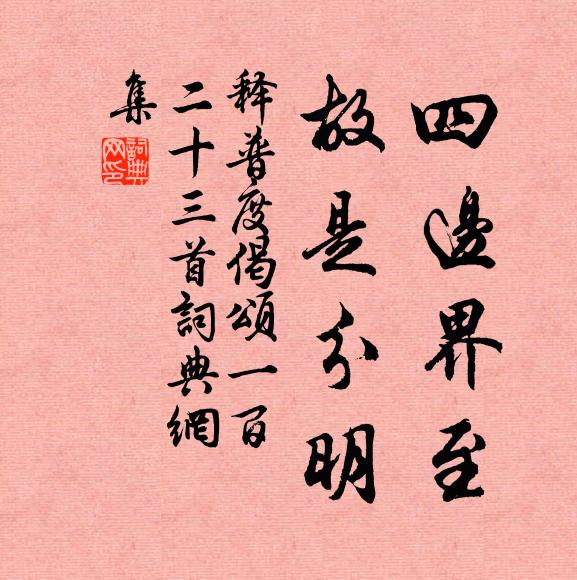 四邊界至
故是分明
释普度偈頌一百
二十三首詞典網
集
詞典
网印